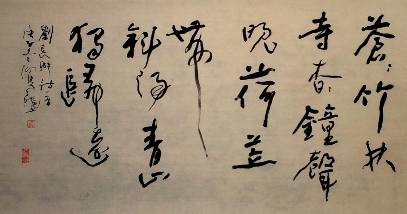 蒼〻竹林
寺杳〻鐘聲
晚荷笠
帶
斜陽青山
獨歸遠
劉長卿詩